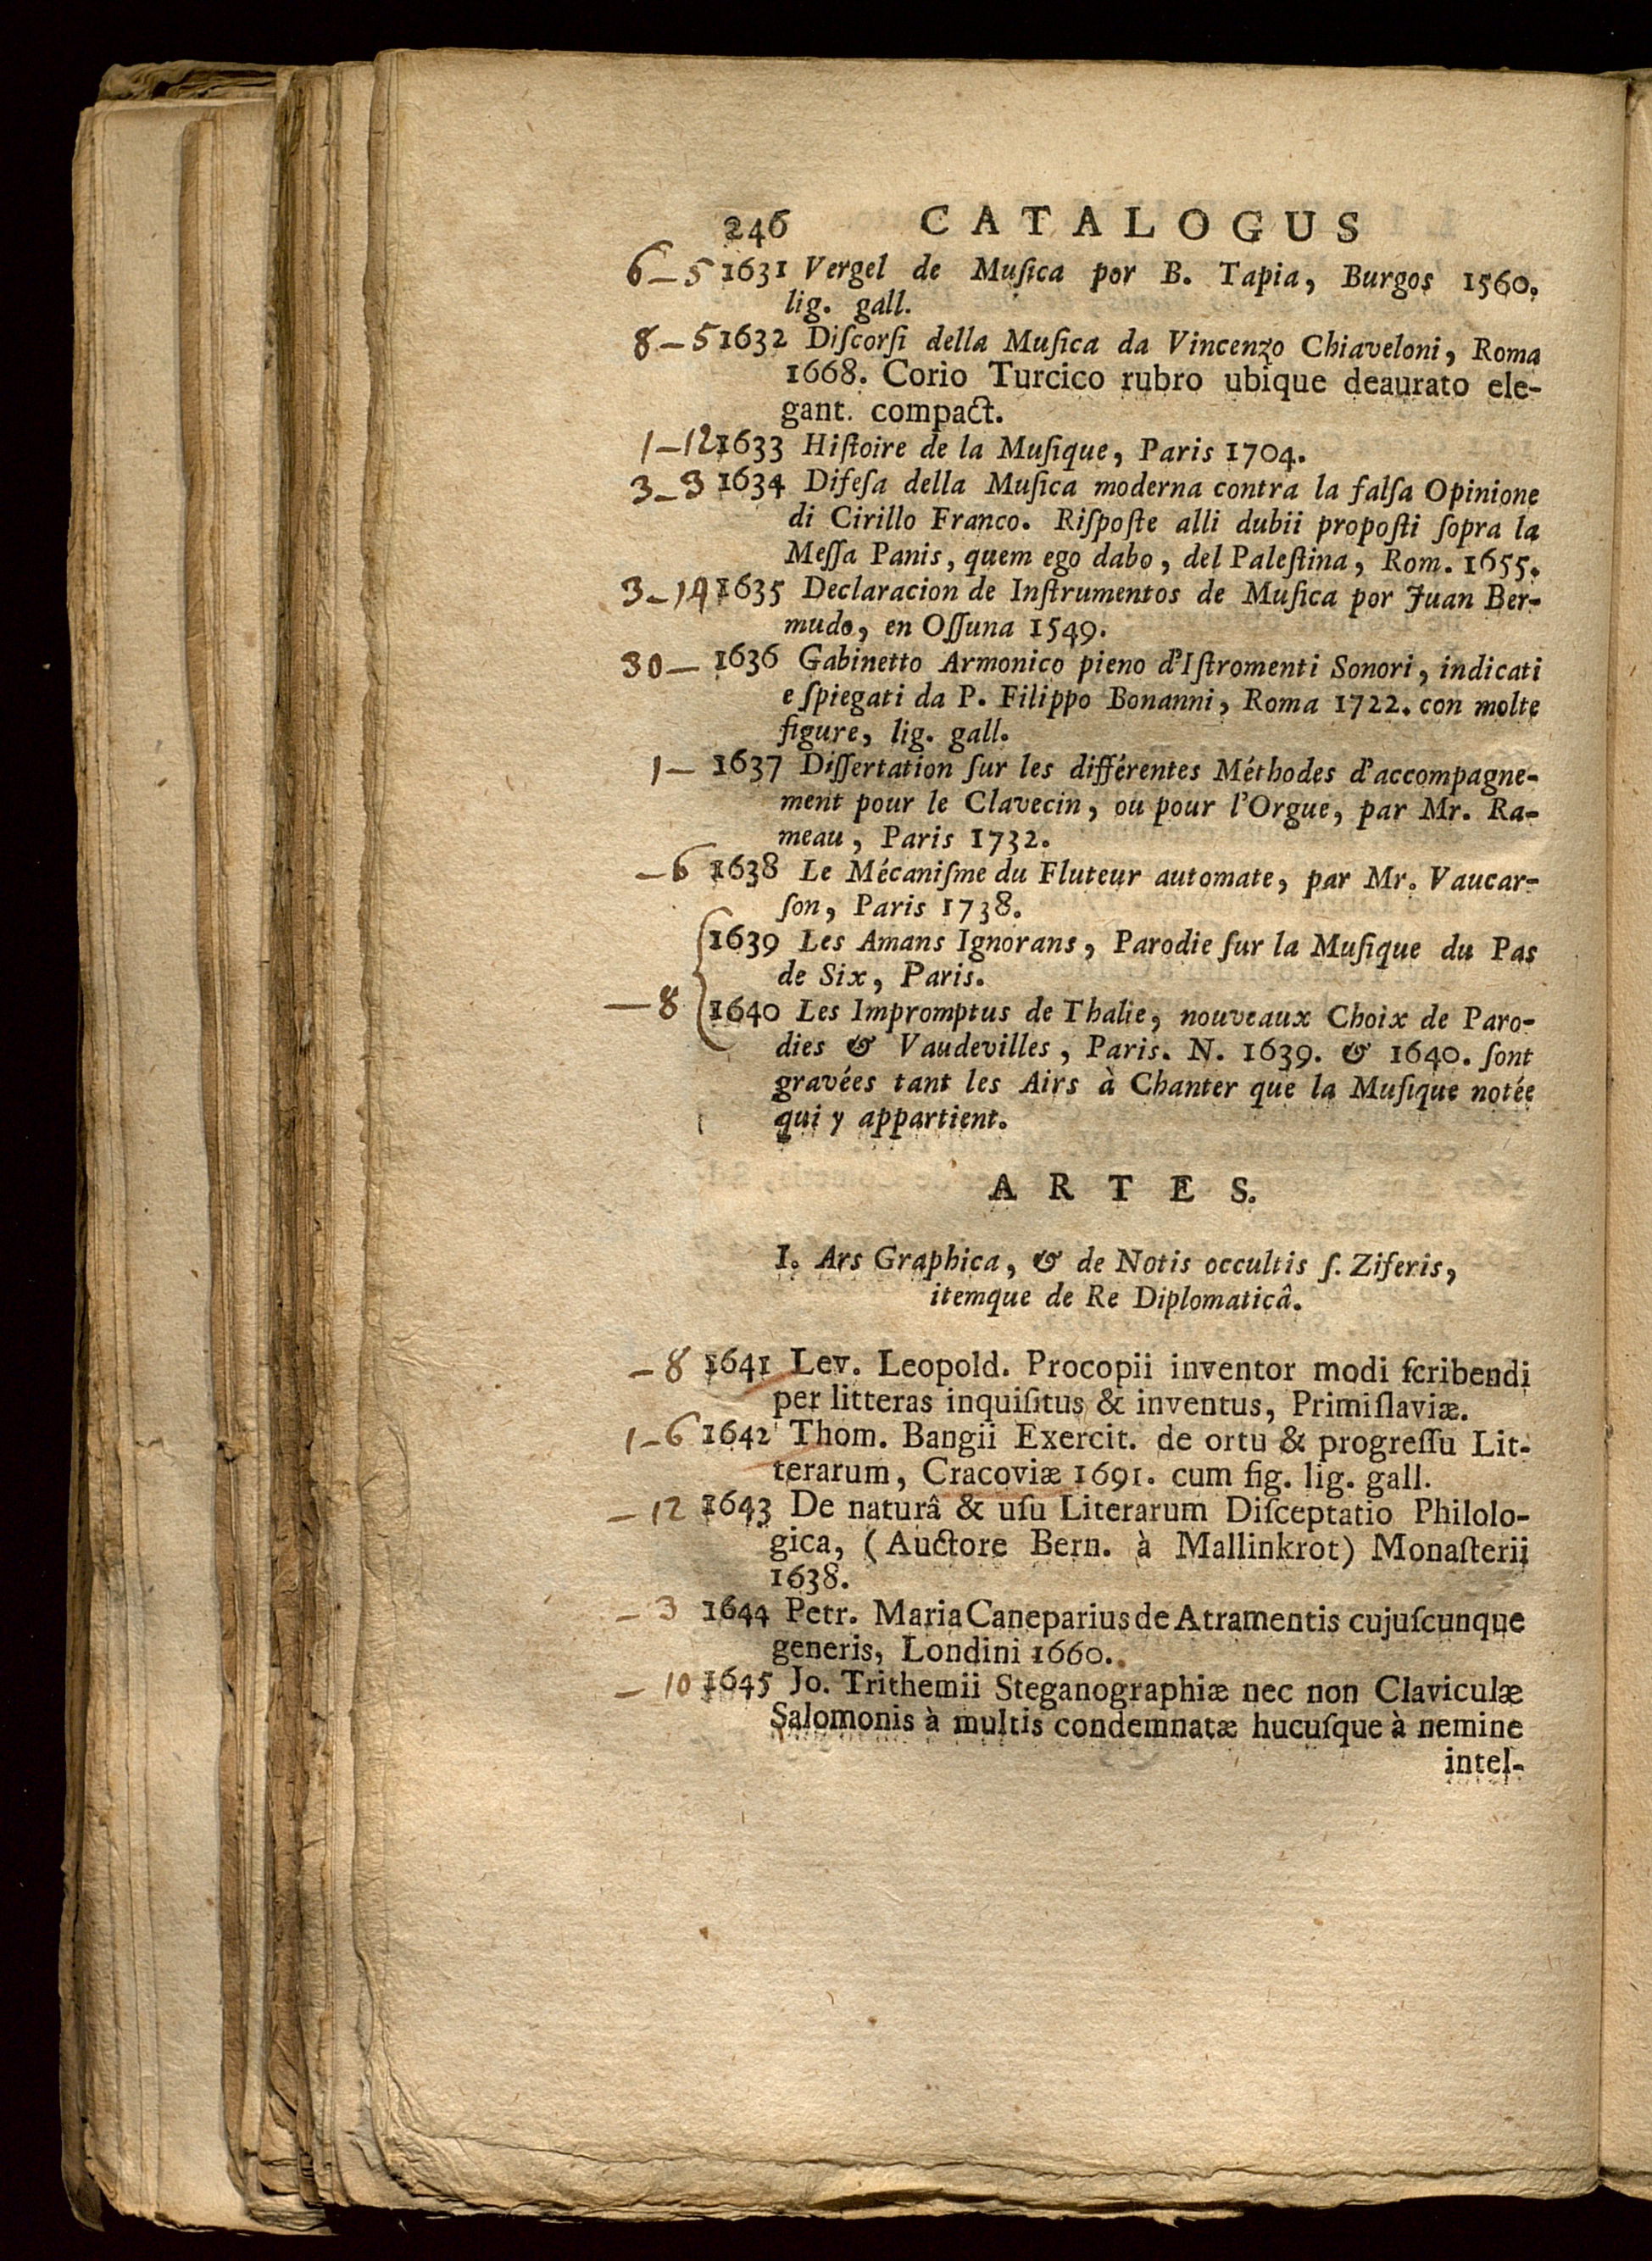 246 CATALOGUS
6–5 1631 Vergel de Muſica por B. Tapia, Burgos 1560.
lig. gall.
8–5 1632 Diſcorſi della Muſica da Vincenzo Chiaveloni, Roma
1668. Corio Turcico rubro ubique deaurato ele-
gant. compact.
1–12 1633 Hiſtoire de la Muſique, Paris 1704.
3–3 1634 Difeſa della Muſica moderna contra la falſa Opinione
di Cirillo Franco. Riſpoſte alli dubii propoſti ſopra la
Meſſa Panis, quem ego dabo, del Paleſtina, Rom. 1655.
3–14 1635 Declaracion de Inſtrumentos de Muſica por Juan Ber-
mudo, en Oſſuna 1549.
30– 1636 Gabinetto Armonico pieno d'Iſtromenti Sonori, indicati
e ſpiegati da P. Filippo Bonanni, Roma 1722. con molte
figure, lig. gall.
1– 1637 Diſſertation ſur les différentes Méthodes d'accompagne-
ment pour le Clavecin, ou pour l'Orgue, par Mr. Ra-
meau, Paris 1732.
–6 1638 Le Mécaniſme du Fluteur automate, par Mr. Vaucar-
ſon, Paris 1738.
1639 Les Amans Ignorans, Parodie ſur la Muſique du Pas
de Six, Paris.
–8 1640 Les Impromptus de Thalie, nouveaux Choix de Paro-
dies & Vaudevilles, Paris. N. 1639. & 1640. ſont
gravées tant les Airs à Chanter que la Muſique notée
qui y appartient.
ARTES.
I. Ars Graphica, & de Notis occultis ſ. Ziferis,
itemque de Re Diplomaticâ.
–8 1641 Lev. Leopold. Procopii inventor modi ſcribendi
per litteras inquiſitus & inventus, Primiſlaviæ.
1–6 1642 Thom. Bangii Exercit. de ortu & progreſſu Lit-
terarum, Cracoviæ 1691. cum fig. lig. gall.
–12 1643 De naturâ & uſu Literarum Diſceptatio Philolo-
gica, (Auctore Bern. à Mallinkrot) Monaſterii
1638.
–3 1644 Petr. Maria Caneparius de Atramentis cujuſcunque
generis, Londini 1660.
–10 1645 Jo. Trithemii Steganographiæ nec non Claviculæ
Salomonis à multis condemnatæ hucuſque à nemine
intel-